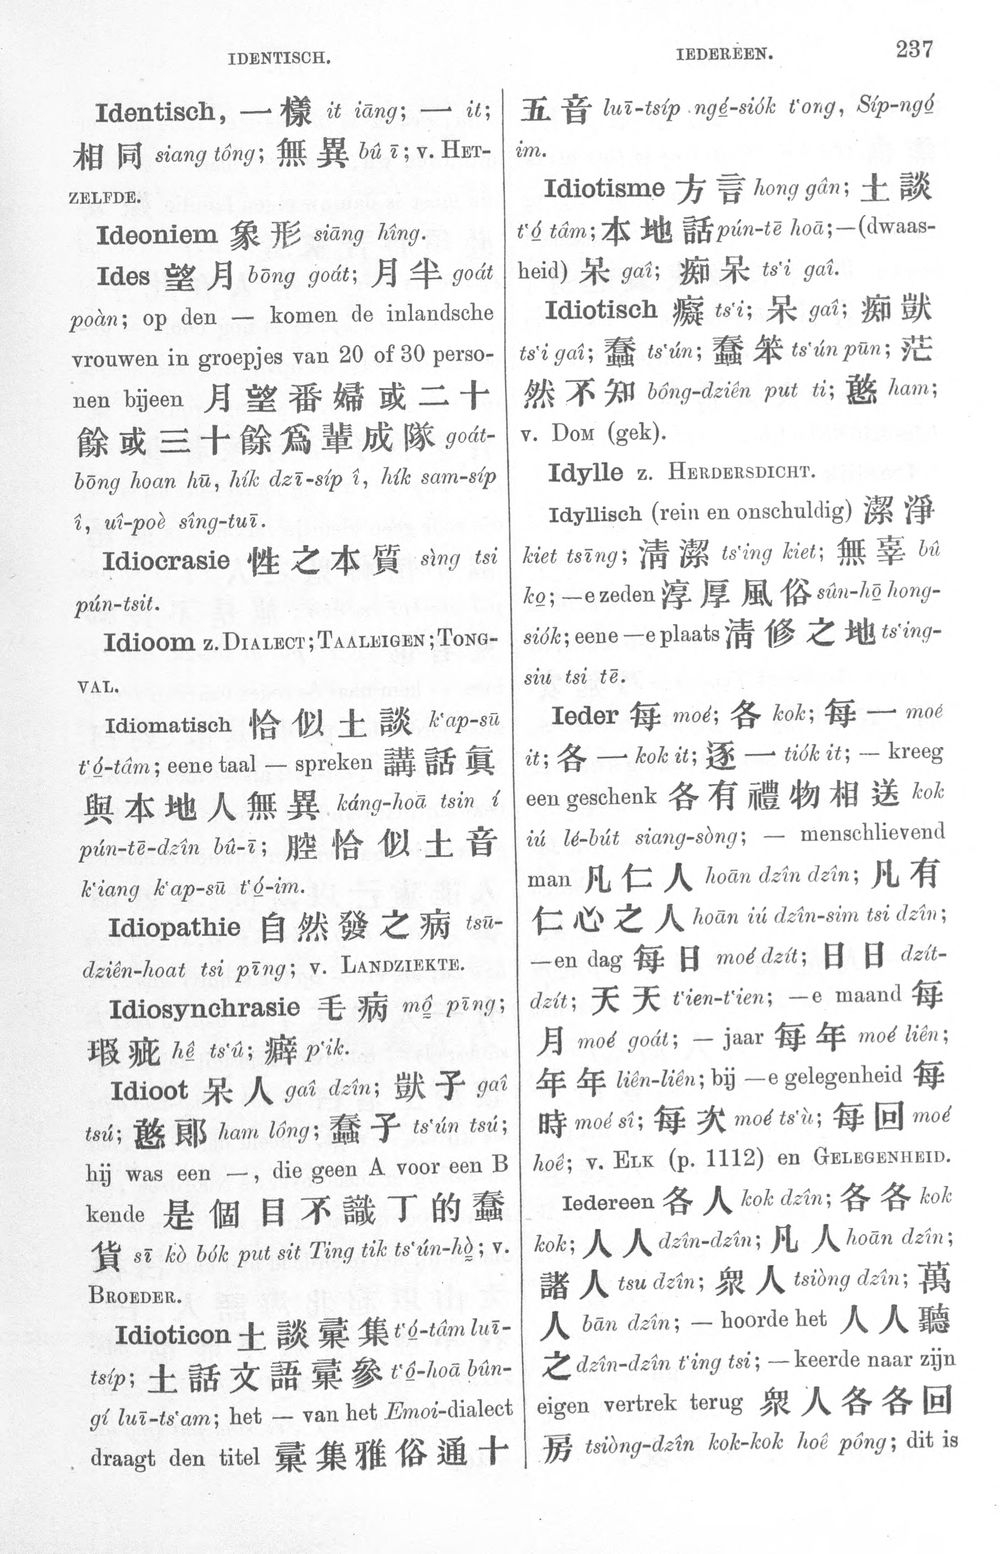 IDENTISCH.
IEDEREEN.
237
Identisch, 一樣 it iāng; 一 it;
相同 siang tông; 無異 bû ī; v. HET-
ZELFDE.
Ideoniem 象形 siāng hîng.
Ides 望月 bōng goát; 月半 goát
poàn; op den — komen de inlandsche
vrouwen in groepjes van 20 of 30 perso-
nen bijeen 月望番婦或二十
餘或三十餘爲輩成隊 goát-
bōng hoan hū, hík dzī-síp î, hík sam-síp
î, uî-poè sîng-tuī.
Idiocrasie 性之本質 sìng tsi
pún-tsit.
Idioom z. DIALECT; TAALEIGEN; TONG-
VAL.
Idiomatisch 恰似土談 k‘ap-sū
t‘ó͘-tâm; eene taal — spreken 講話眞
與本地人無異 káng-hoā tsin í
pún-tē-dzîn bû-ī; 腔恰似土音
k‘iang k‘ap-sū t‘ó͘-im.
Idiopathie 自然發之病 tsū-
dziên-hoat tsi pīng; v. LANDZIEKTE.
Idiosynchrasie 毛病 mô͘ pīng;
瑕疵 hê ts‘û; 癖 p‘ik.
Idioot 呆人 gaî dzîn; 獃子 gaî
tsú; 憨郎 ham lông; 蠢子 ts‘ún tsú;
hij was een —, die geen A voor een B
kende 是個目不識丁的蠢
貨 sī kò bók put sit Ting tik ts‘ún-hò͘; v.
BROEDER.
Idioticon 土談彙集 t‘ó͘-tâm luī-
tsíp; 土話文語彙參 t‘ó͘-hoā bûn-
gí luī-ts‘am; het — van het Emoi-dialect
draagt den titel 彙集雅俗通十
五音 luī-tsíp ngé-siók t‘ong, Síp-ngó͘
im.
Idiotisme 方言 hong gân; 土談
t‘ó͘ tâm; 本地話 pún-tē hoā; — (dwaas-
heid) 呆 gaî; 痴呆 ts‘i gaî.
Idiotisch 癡 ts‘i; 呆 gaî; 痴獃
ts‘i gaî; 蠢 ts‘ún; 蠢笨 ts‘ún pūn; 茫
然不知 bông-dziên put ti; 憨 ham;
v. DOM (gek).
Idylle z. HERDERSDICHT.
Idyllisch (rein en onschuldig) 潔淨
kiet tsīng; 清潔 ts‘ing kiet; 無辜 bû
ko͘; —e zeden 淳厚風俗 sûn-hō͘ hong-
siók; eene —e plaats 清修之地 ts‘ing-
siu tsi tē.
Ieder 每 moé; 各 kok; 每一 moé
it; 各一 kok it; 逐一 tiók it; — kreeg
een geschenk 各有禮物相送 kok
iú lé-bút siang-sòng; — menschlievend
man 凡仁人 hoān dzîn dzîn; 凡有
仁心之人 hoān iú dzîn-sim tsi dzîn;
—en dag 每日 moé dzít; 日日 dzít-
dzít; 天天 t‘ien-t‘ien; —e maand 每
月 moé goát; — jaar 每年 moé liên;
年年 liên-liên; bij —e gelegenheid 每
時 moé sî; 每次 moé ts‘ù; 每回 moé
hoê; v. ELK (p. 1112) en GELEGENHEID.
Iedereen 各人 kok dzîn; 各各 kok
kok; 人人 dzîn-dzîn; 凡人 hoān dzîn;
諸人 tsu dzîn; 衆人 tsiòng dzîn; 萬
人 bān dzîn; — hoorde het 人人聽
之 dzîn-dzîn t‘ing tsi; — keerde naar zijn
eigen vertrek terug 衆人各各回
房 tsiòng-dzîn kok-kok hoê pông; dit is